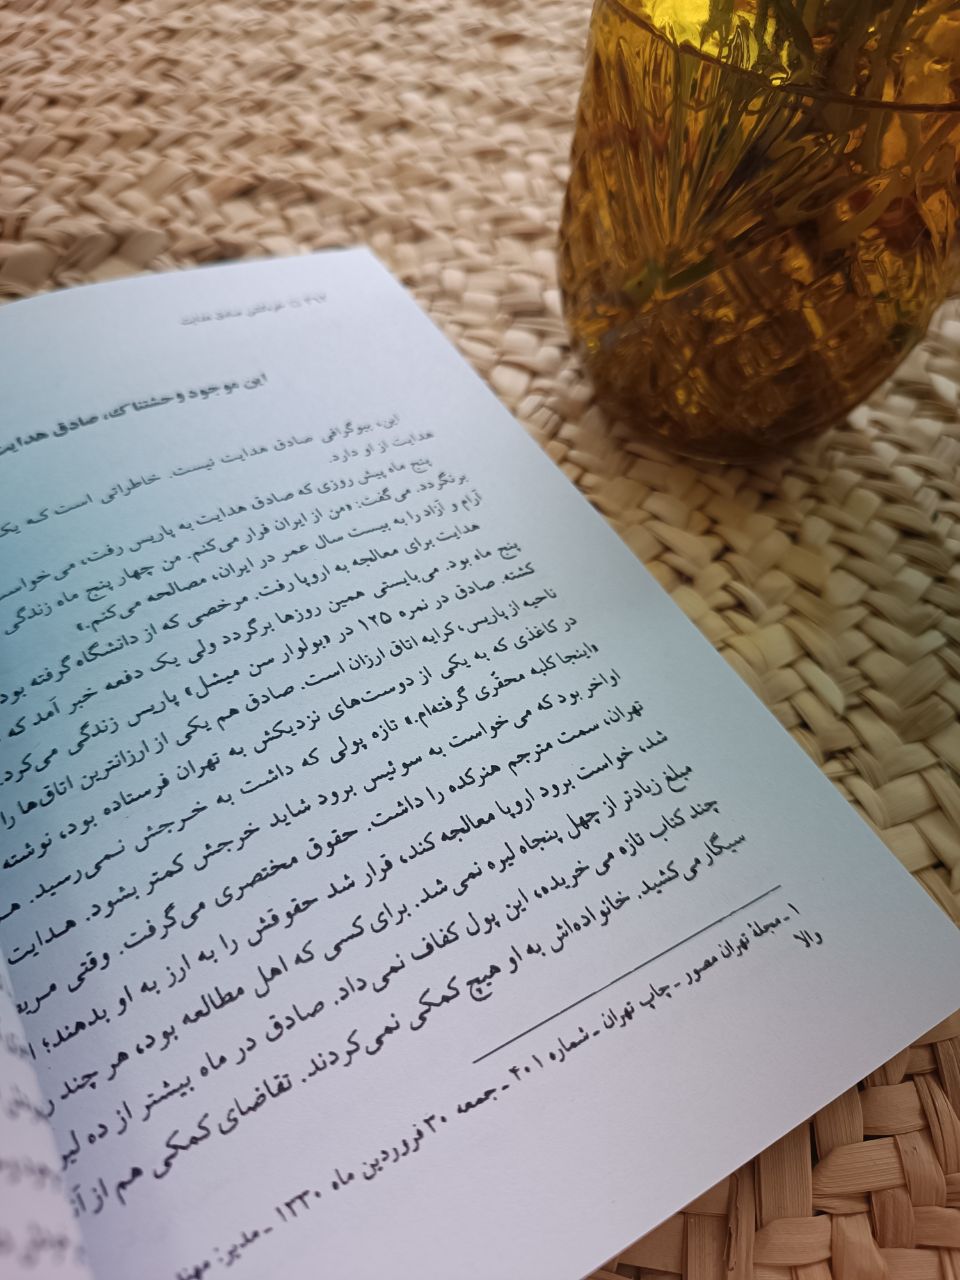 صادق هدایت
این موجود وحشتناک، صادق هدایت
این، بیوگرافی صادق هدایت نیست. خاطراتی است که یک
هدایت از او دارد.
پنج ماه پیش روزی که صادق هدایت به پاریس رفت، می‌خواست
برنگردد. می‌گفت: «من از ایران فرار می‌کنم. من چهار پنج ماه زندگی
آرام و آزاد را به بیست سال عمر در ایران، مصالحه می‌کنم.»
هدایت برای معالجه به اروپا رفت. مرخصی که از دانشگاه گرفته بود
پنج ماه بود. می‌بایستی همین روزها برگردد ولی یک دفعه خبر آمد که
کشته. صادق در نمره ۱۲۵ در «بولوار سن میشل» پاریس زندگی می‌کرد.
ناحیه از پاریس، کرایه اتاق ارزان است. صادق هم یکی از ارزانترین اتاق‌ها را
در کاغذی که به یکی از دوست‌های نزدیکش به تهران فرستاده بود، نوشته
«اینجا کلبه محقّری گرفته‌ام.» تازه پولی که داشت به خرجش نمی‌رسید.
اواخر بود که می‌خواست به سوئیس برود شاید خرجش کمتر بشود. هدایت
تهران، سمت مترجم هنرکده را داشت. حقوق مختصری می‌گرفت. وقتی
شد، خواست برود اروپا معالجه کند، قرار شد حقوقش را به ارز به او بدهند؛
مبلغ زیادتر از چهل پنجاه لیره نمی‌شد. برای کسی که اهل مطالعه بود، هر چند
چند کتاب تازه می خریده، این پول کفاف نمی‌داد. صادق در ماه بیشتر از ده
سیگار می‌کشید. خانواده‌اش به او هیچ کمکی نمی‌کردند. تقاضای کمکی هم از
۱ـ مجلهٔ تهران مصور ـ چاپ تهران ـ شماره ۴۰۱ ـ جمعه ۳۰ فروردین ماه ۱۳۳۰ ـ مدیر:
والا